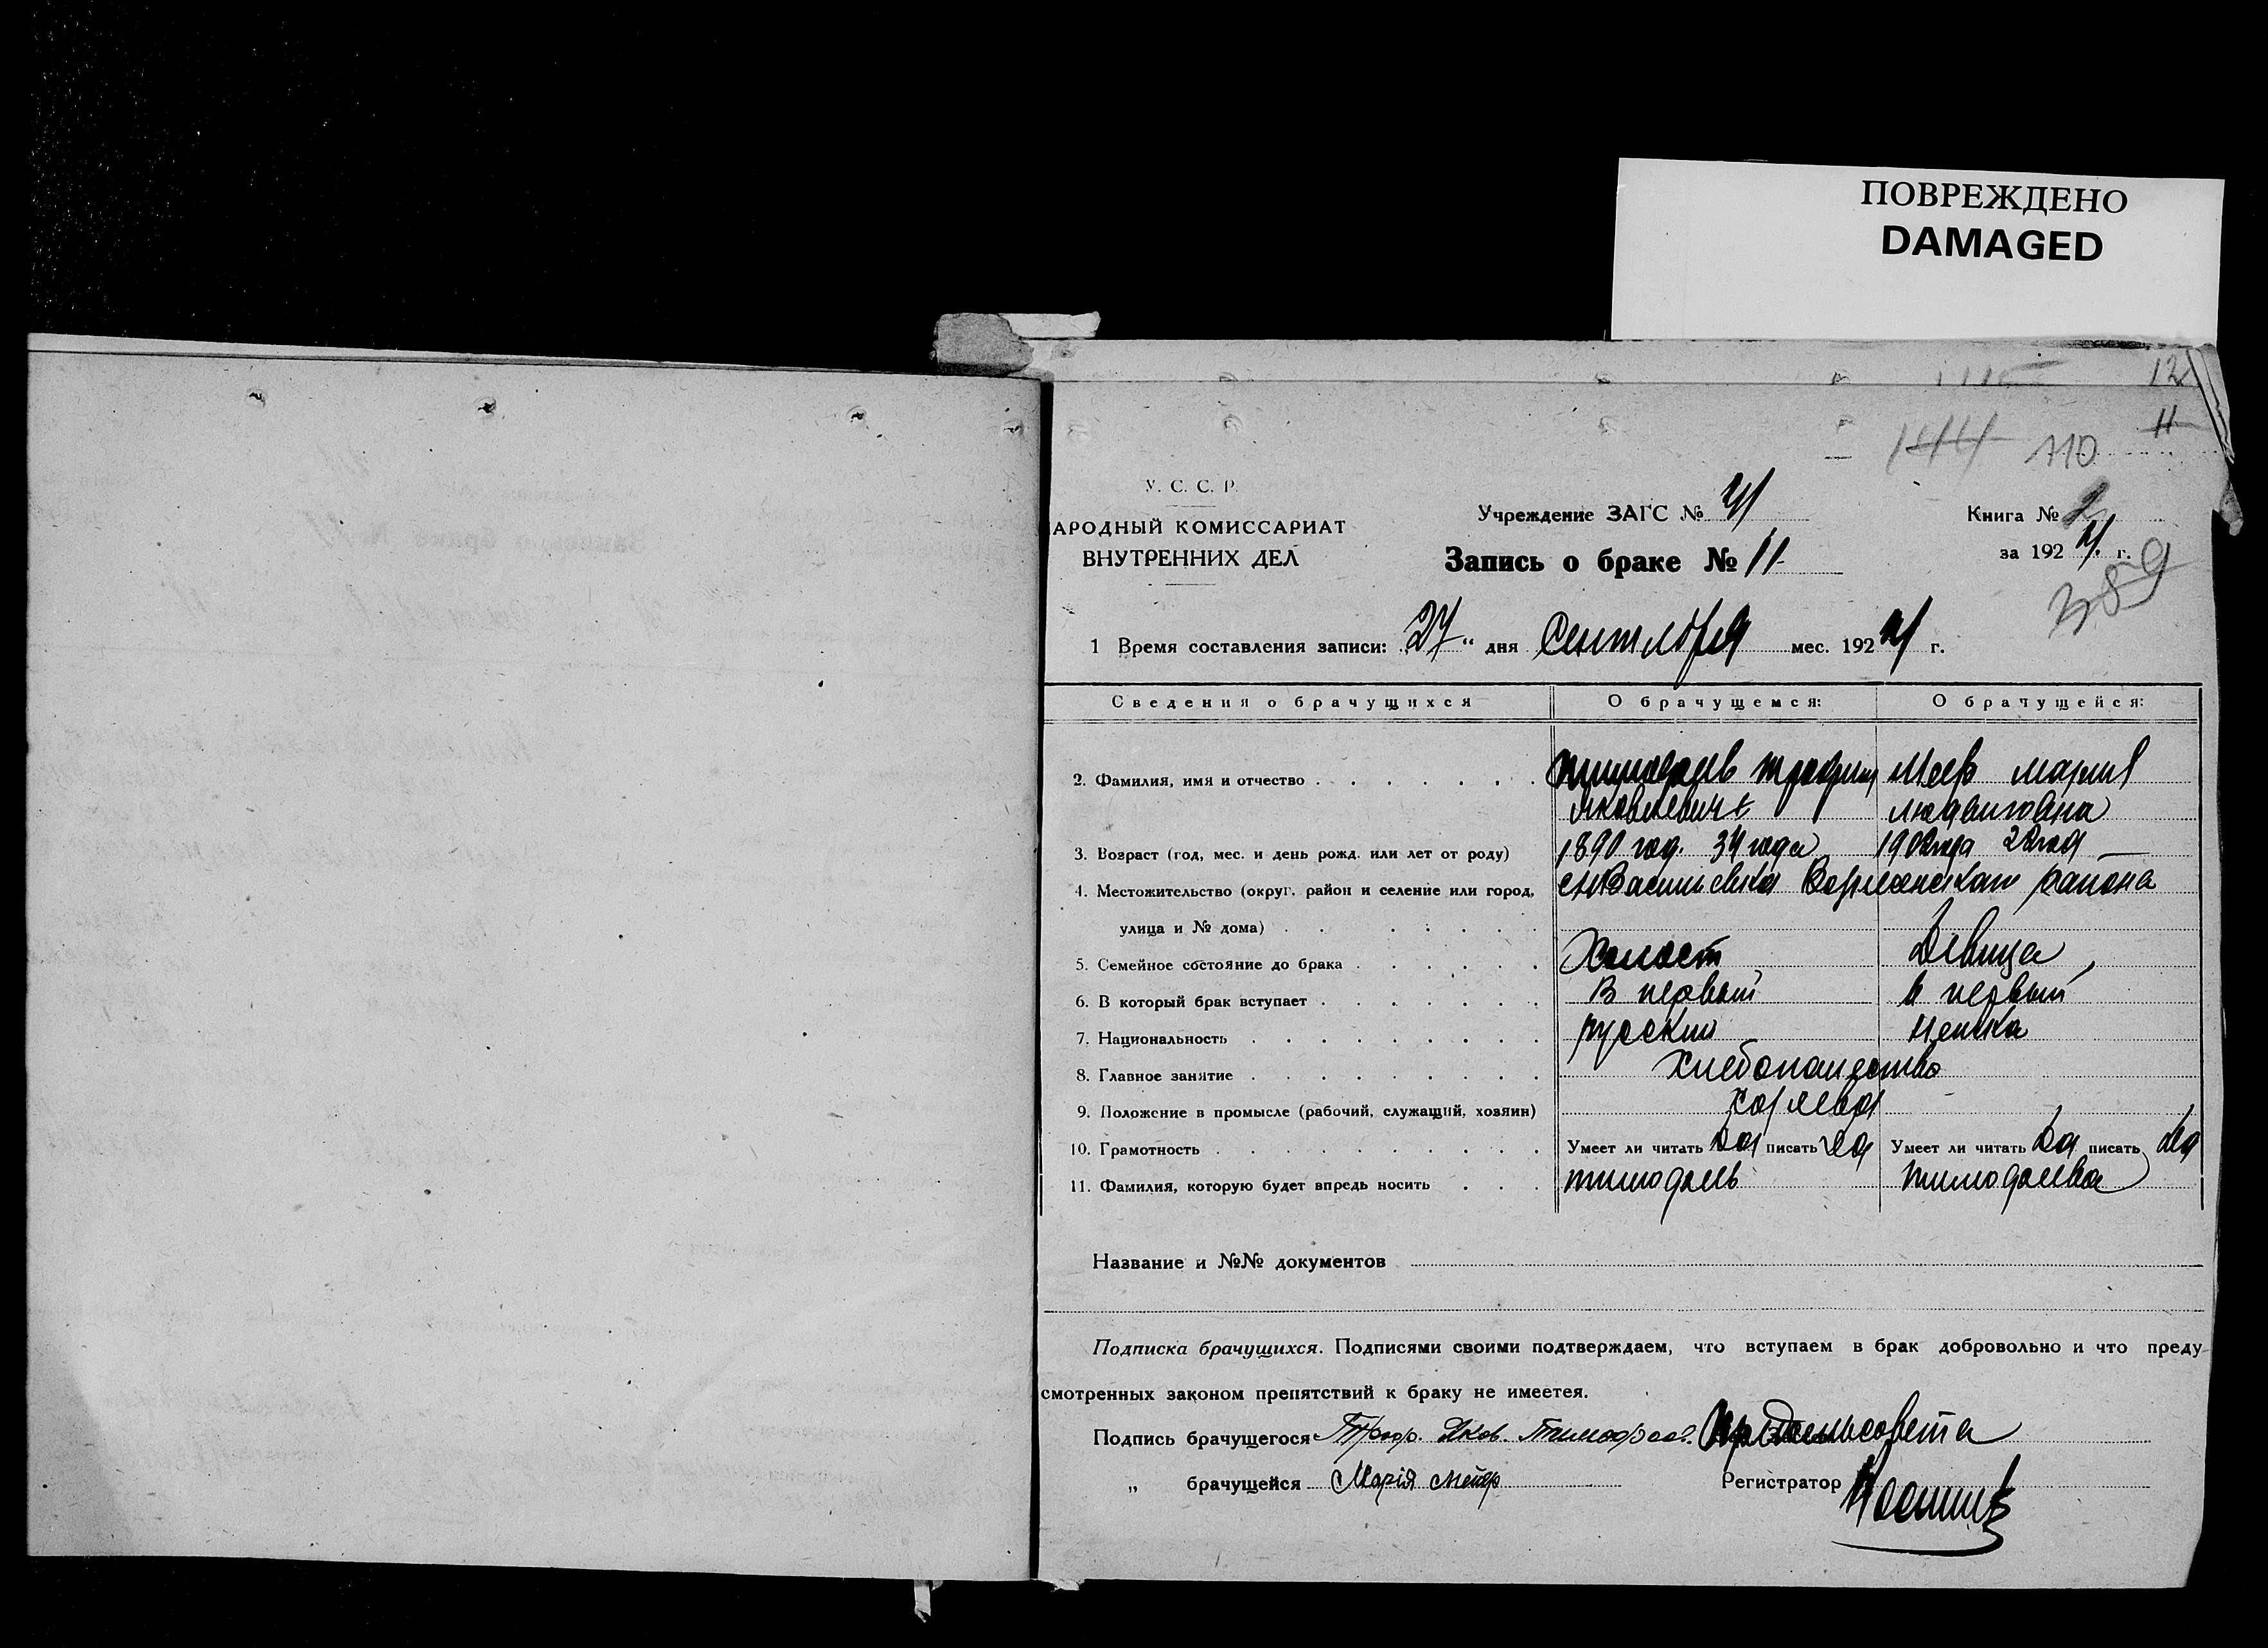 ПОВРЕЖДЕНО
DAMAGED
12
11
144 110
У. С. С. Р.
АРОДНЫЙ КОМИССАРИАТ
ВНУТРЕННИХ ДЕЛ
Учреждение ЗАГС №
Запись о браке № 11
Книга № 2
за 1924 г.
1 Время составления записи: 27 " дня Сентября мес. 1924 г.
Сведения о брачущихся О брачущемся: О брачущейся:
2. Фамилия, имя и отчество Трофим Меер Мария
Яковлевич Людвиговна
3. Возраст (год, мес. и день рожд. или лет от роду) 1890 год. 34 года 1902 года 22 год
4. Местожительство (округ, район и селение или город, Васильевка района
улица и № дома)
5. Семейное состояние до брака Холост Девица
6. В который брак вступает В первый в первый
7. Национальность руский немка
8. Главное занятие Хлебопашество
9. Положение в промысле (рабочий, служащий, хозяин)
10. Грамотность Умеет ли читать да писать да Умеет ли читать да писать да
11. Фамилия, которую будет впредь носить тимофеев тимофеева
Название и №№ документов
Подписка брачущихся. Подписями своими подтверждаем, что вступаем в брак добровольно и что преду
смотренных законом препятствий к браку не имеетея.
Подпись брачущегося Троф. Яков. Тимофеев. сельсовета
„ брачущейся Марія Мейер Регистратор